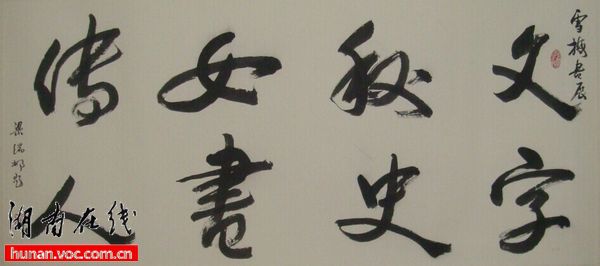 雪梅
文字
秘史
女書
傳人
梁瑞郴题
湖南在线
hunan.voc.com.cn